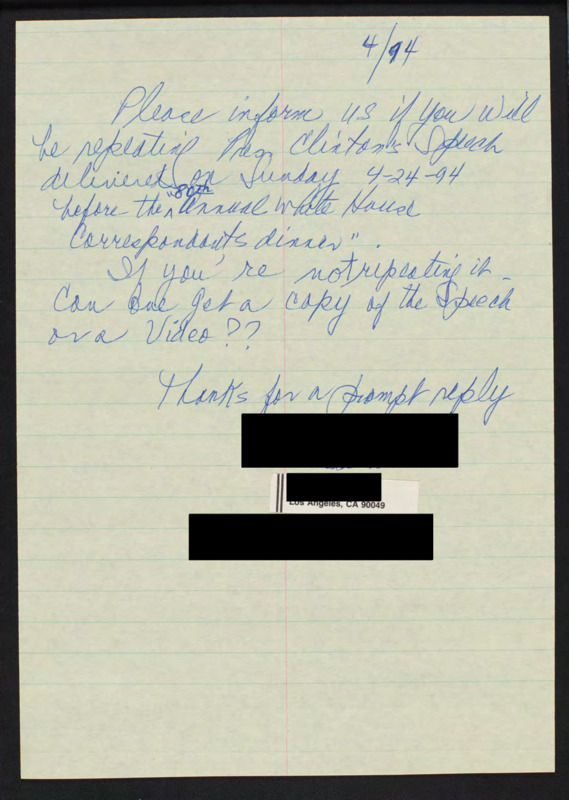 4/94
Please inform us if you will
be repeating Pres Clinton's Speech
delivered on Sunday 4-24-94
before the "80th Annual White House
Correspondants dinner".
If you're not repeating it -
Can one get a copy of the Speech
or a Video??
Thanks for a prompt reply
Los Angeles, CA 90049